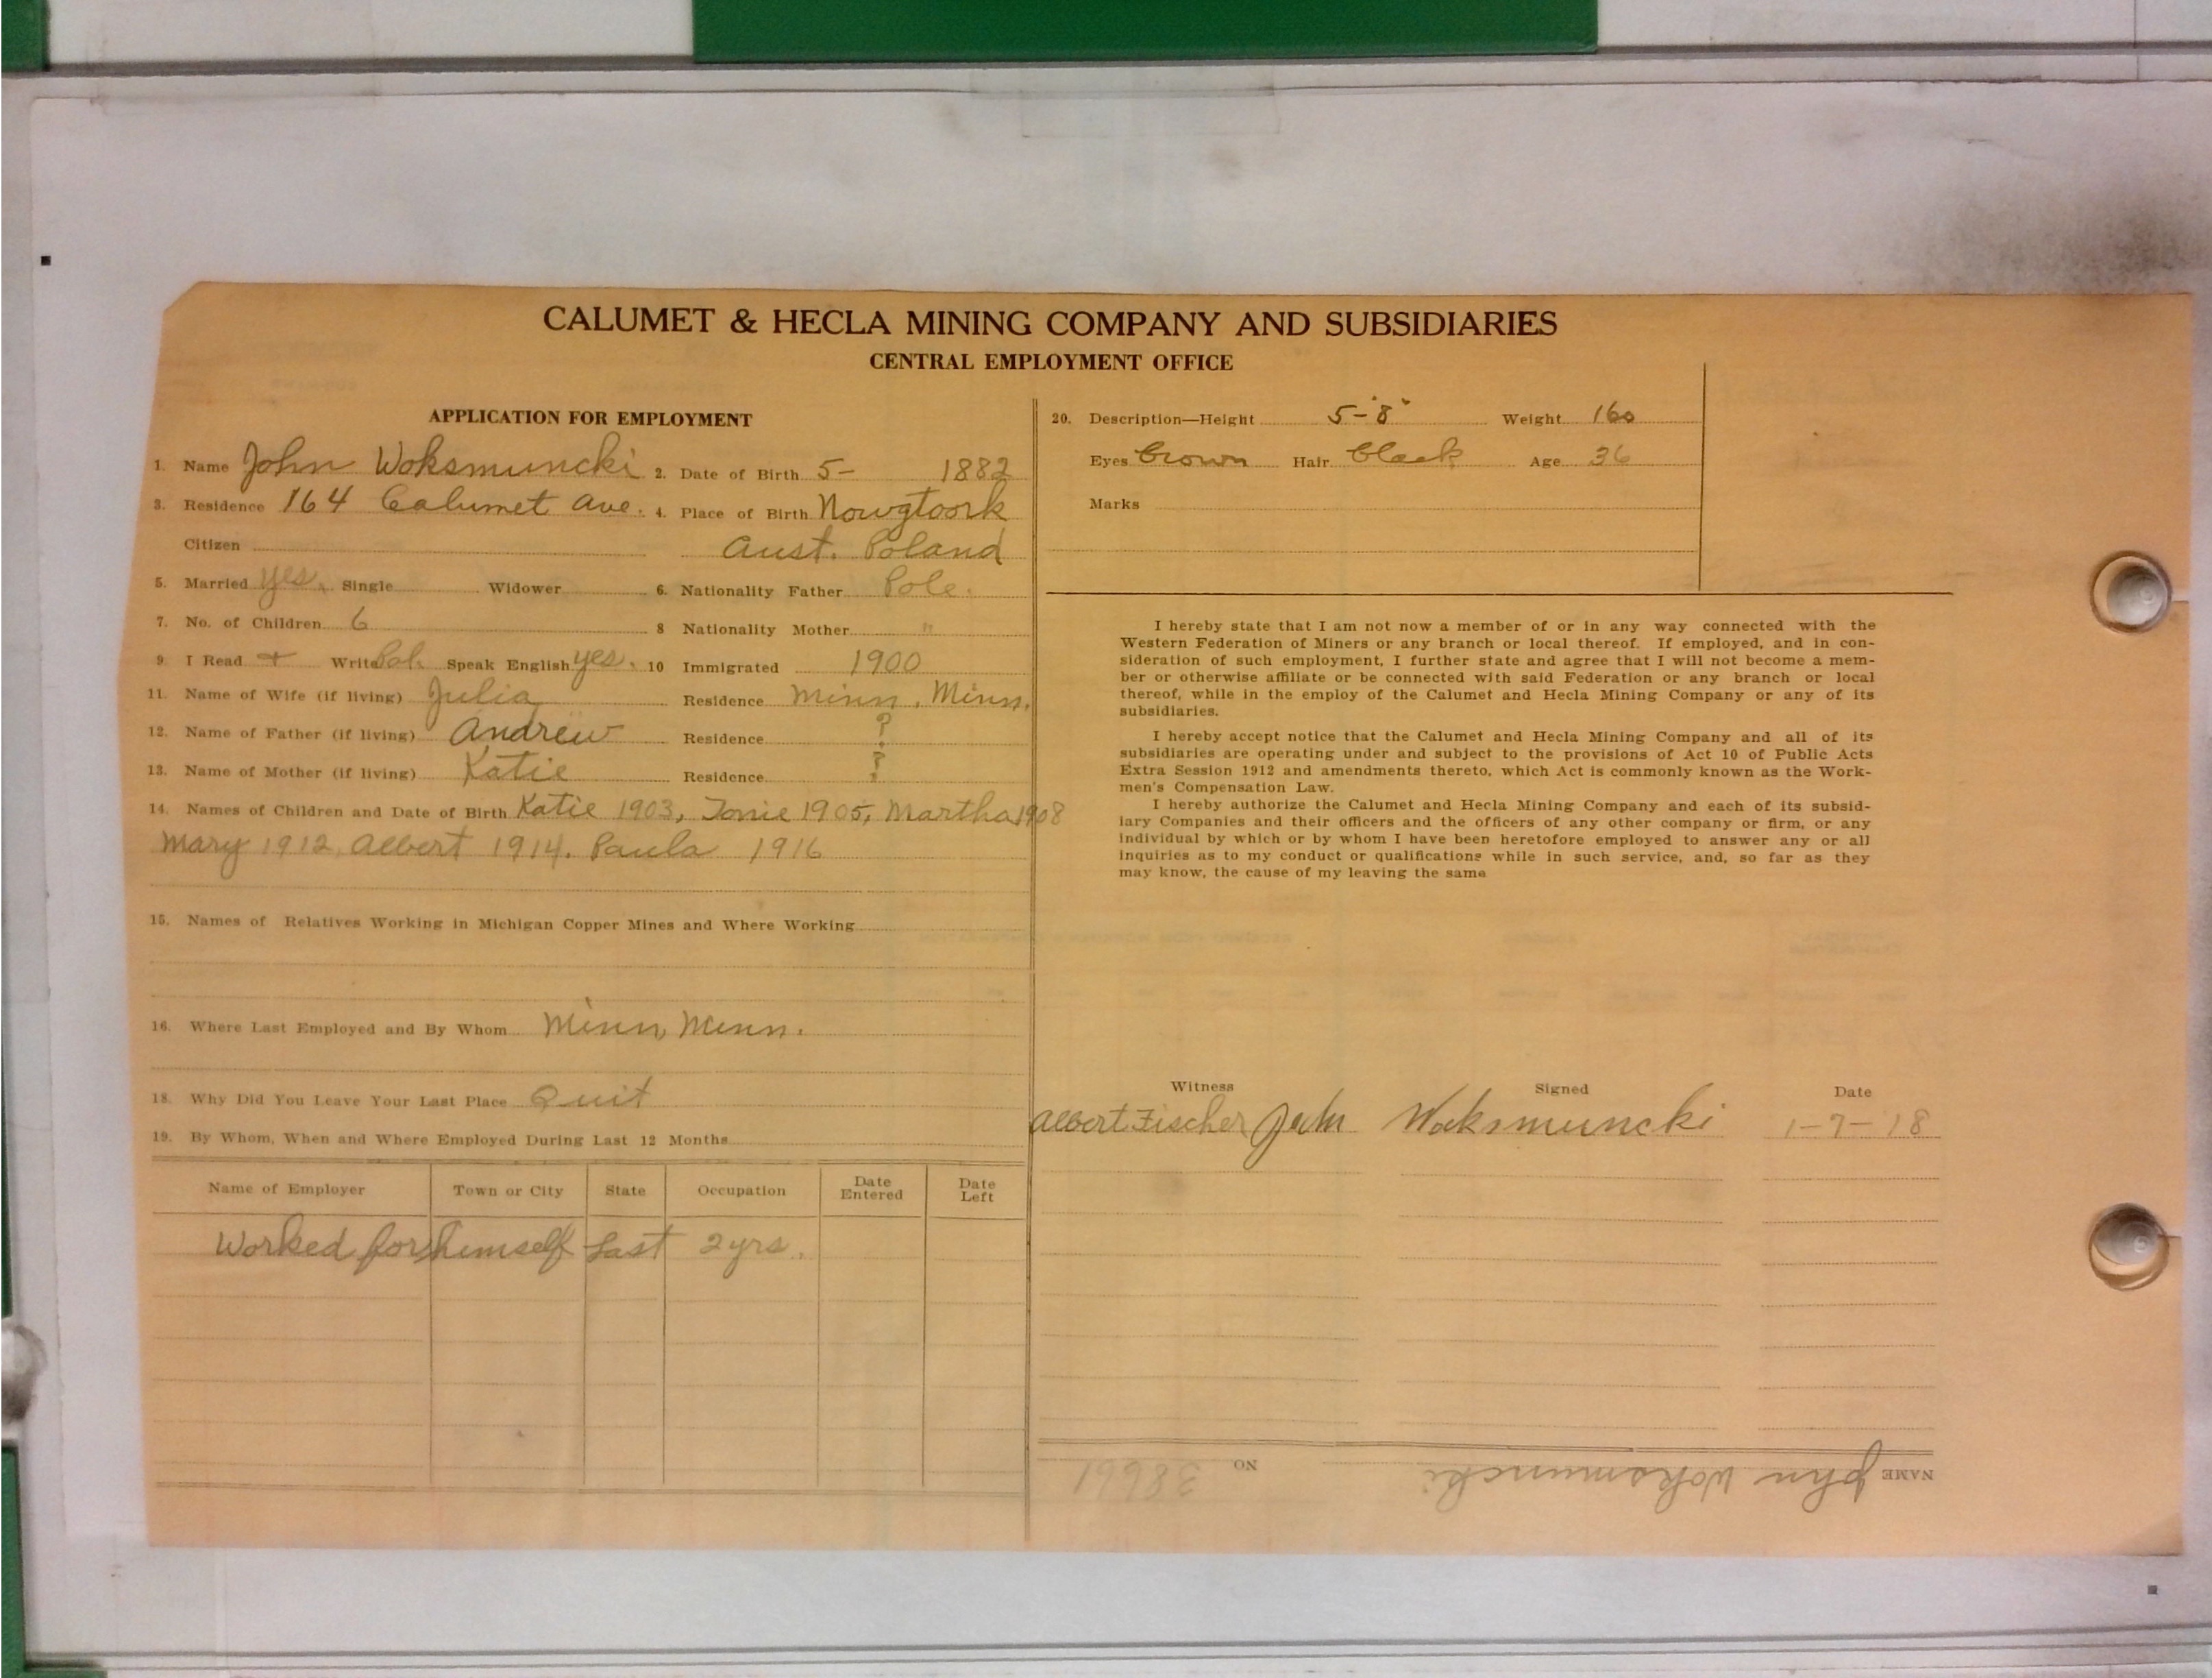 CALUMET & HECLA MINING COMPANY AND SUBSIDIARIES
CENTRAL EMPLOYMENT OFFICE
APPLICATION FOR EMPLOYMENT
1. Name John Woksmuncki 2. Date of Birth 5- 1882
3. Residence 164 Calumet Ave. 4. Place of Birth Nowgtoork
Citizen Aust. Poland
5. Married yes. Single Widower 6. Nationality Father Pole.
7. No. of Children 6 8 Nationality Mother "
9. I Read + Write Pol. Speak English yes. 10 Immigrated 1900
11. Name of Wife (if living) Julia Residence Minn, Minn.
12. Name of Father (if living) Andrew Residence ?
13. Name of Mother (if living) Katie Residence ?
14. Names of Children and Date of Birth Katie 1903, Tonie 1905, Martha 1908
Mary 1912, Albert 1914. Paula 1916
15. Names of Relatives Working in Michigan Copper Mines and Where Working
16. Where Last Employed and By Whom Minn, Minn.
18. Why Did You Leave Your Last Place Quit
19. By Whom, When and Where Employed During Last 12 Months
Name of Employer Town or City State Occupation Date Entered Date Left
Worked for himself last 2 yrs.
20. Description—Height 5-"8" Weight 160
Eyes brown Hair black Age 36
Marks
I hereby state that I am not now a member of or in any way connected with the
Western Federation of Miners or any branch or local thereof. If employed, and in con-
sideration of such employment, I further state and agree that I will not become a mem-
ber or otherwise affiliate or be connected with said Federation or any branch or local
thereof, while in the employ of the Calumet and Hecla Mining Company or any of its
subsidiaries.
I hereby accept notice that the Calumet and Hecla Mining Company and all of its
subsidiaries are operating under and subject to the provisions of Act 10 of Public Acts
Extra Session 1912 and amendments thereto, which Act is commonly known as the Work-
men's Compensation Law.
I hereby authorize the Calumet and Hecla Mining Company and each of its subsid-
iary Companies and their officers and the officers of any other company or firm, or any
individual by which or by whom I have been heretofore employed to answer any or all
inquiries as to my conduct or qualifications while in such service, and, so far as they
may know, the cause of my leaving the same
Witness Signed Date
Albert Fischer John Woksmuncki 1-7-'18
NAME John Woksmuncki NO 38661